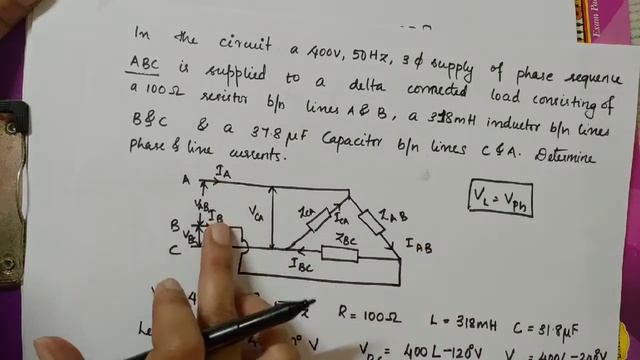 In the circuit a 400V, 50Hz, 3ϕ supply of phase sequence
ABC is supplied to a delta connected load consisting of
a 100Ω resistor b/n lines A & B, a 318mH inductor b/n lines
B & C & a 37.8 μF Capacitor b/n lines C & A. Determine
phase & line currents.
A I_A
V_AB V_CA Z_CA I_CA Z_AB
V_L = V_Ph
B I_B
V_BC Z_BC I_AB
C
I_BC
R = 100Ω L = 318mH C = 31.8μF
V 400∟-120°V